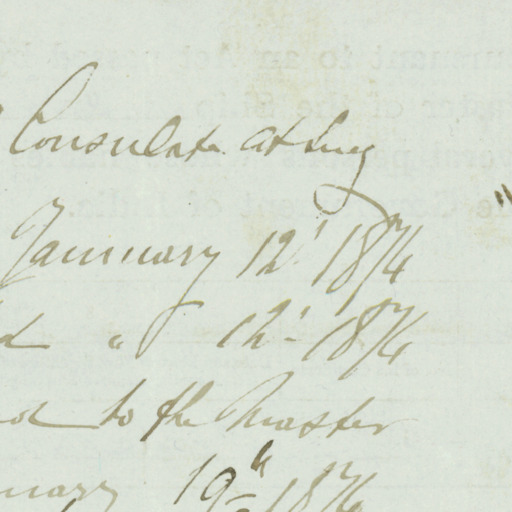 Consulate at Suez
January 12' 1874
d " 12' 1874
d to the Master
nuary 19th 1874